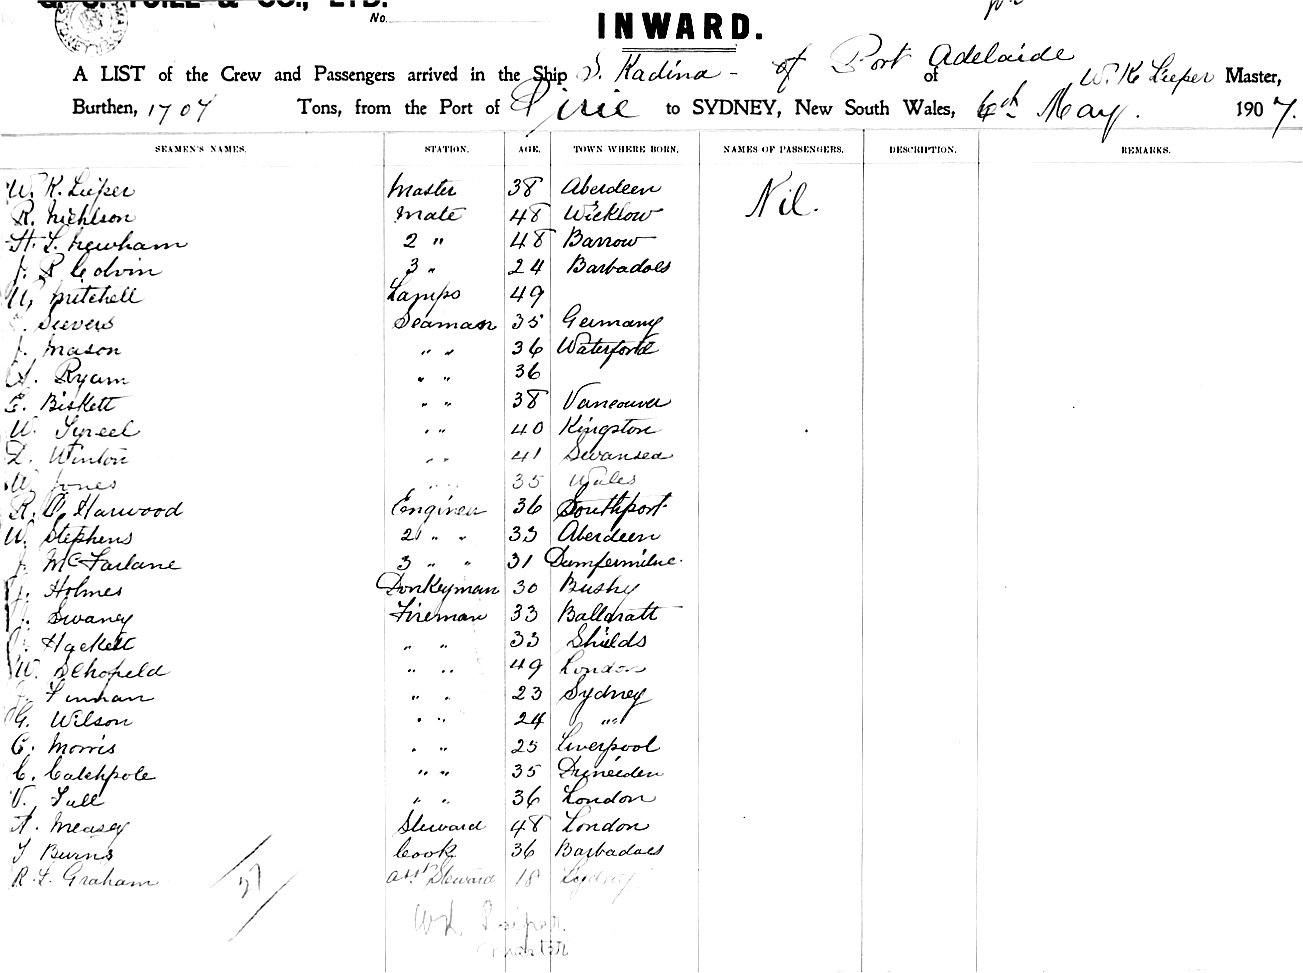 & CO., LTD.
No.
INWARD.
A LIST of the Crew and Passengers arrived in the Ship S. Kadina - of Port Adelaide of W. K. Lieper Master,
Burthen, 1707 Tons, from the Port of Pirie to SYDNEY, New South Wales, 6th May. 1907.
SEAMEN'S NAMES. STATION. AGE. TOWN WHERE BORN. NAMES OF PASSENGERS. DESCRIPTION. REMARKS.
W. K. Lieper Master 38 Aberdeen Nil.
R. Nichlson Mate 48 Wicklow
H. L. Newham 2 " 48 Barrow
J. R Colvin 3 " 24 Barbadoes
W. Mitchell Lamps 49
Seevers Seaman 35 Germany
J. Mason " " 36 Waterford
Ryam " " 36
E. Biskett " " 38 Vancouver
W. " " 40 Kingston
D. Winton " " 41 Swansea
W. Jones " " 35 Wales
R. O. Harwood Engineer 36 Southport
W. Stephens 2 " " 33 Aberdeen
J. McFarlane 3 " " 31 Dumfermilne.
J. Holmes Donkeyman 30 Bushy
J. Swaney Fireman 33 Ballaratt
Hackett " " 33 Shields
W. Schofield " " 49 London
J. Linnan " " 23 Sydney
G. Wilson " " 24 " "
C. Morris " " 25 Liverpool
C. Catchpole " " 35 Duneiden
V. Tull " " 36 London
A. Measey Steward 48 London
T Burns Cook 36 Barbadoes
R. L. Graham Asst Steward 18 Sydney
27
WK Lieper.
Master